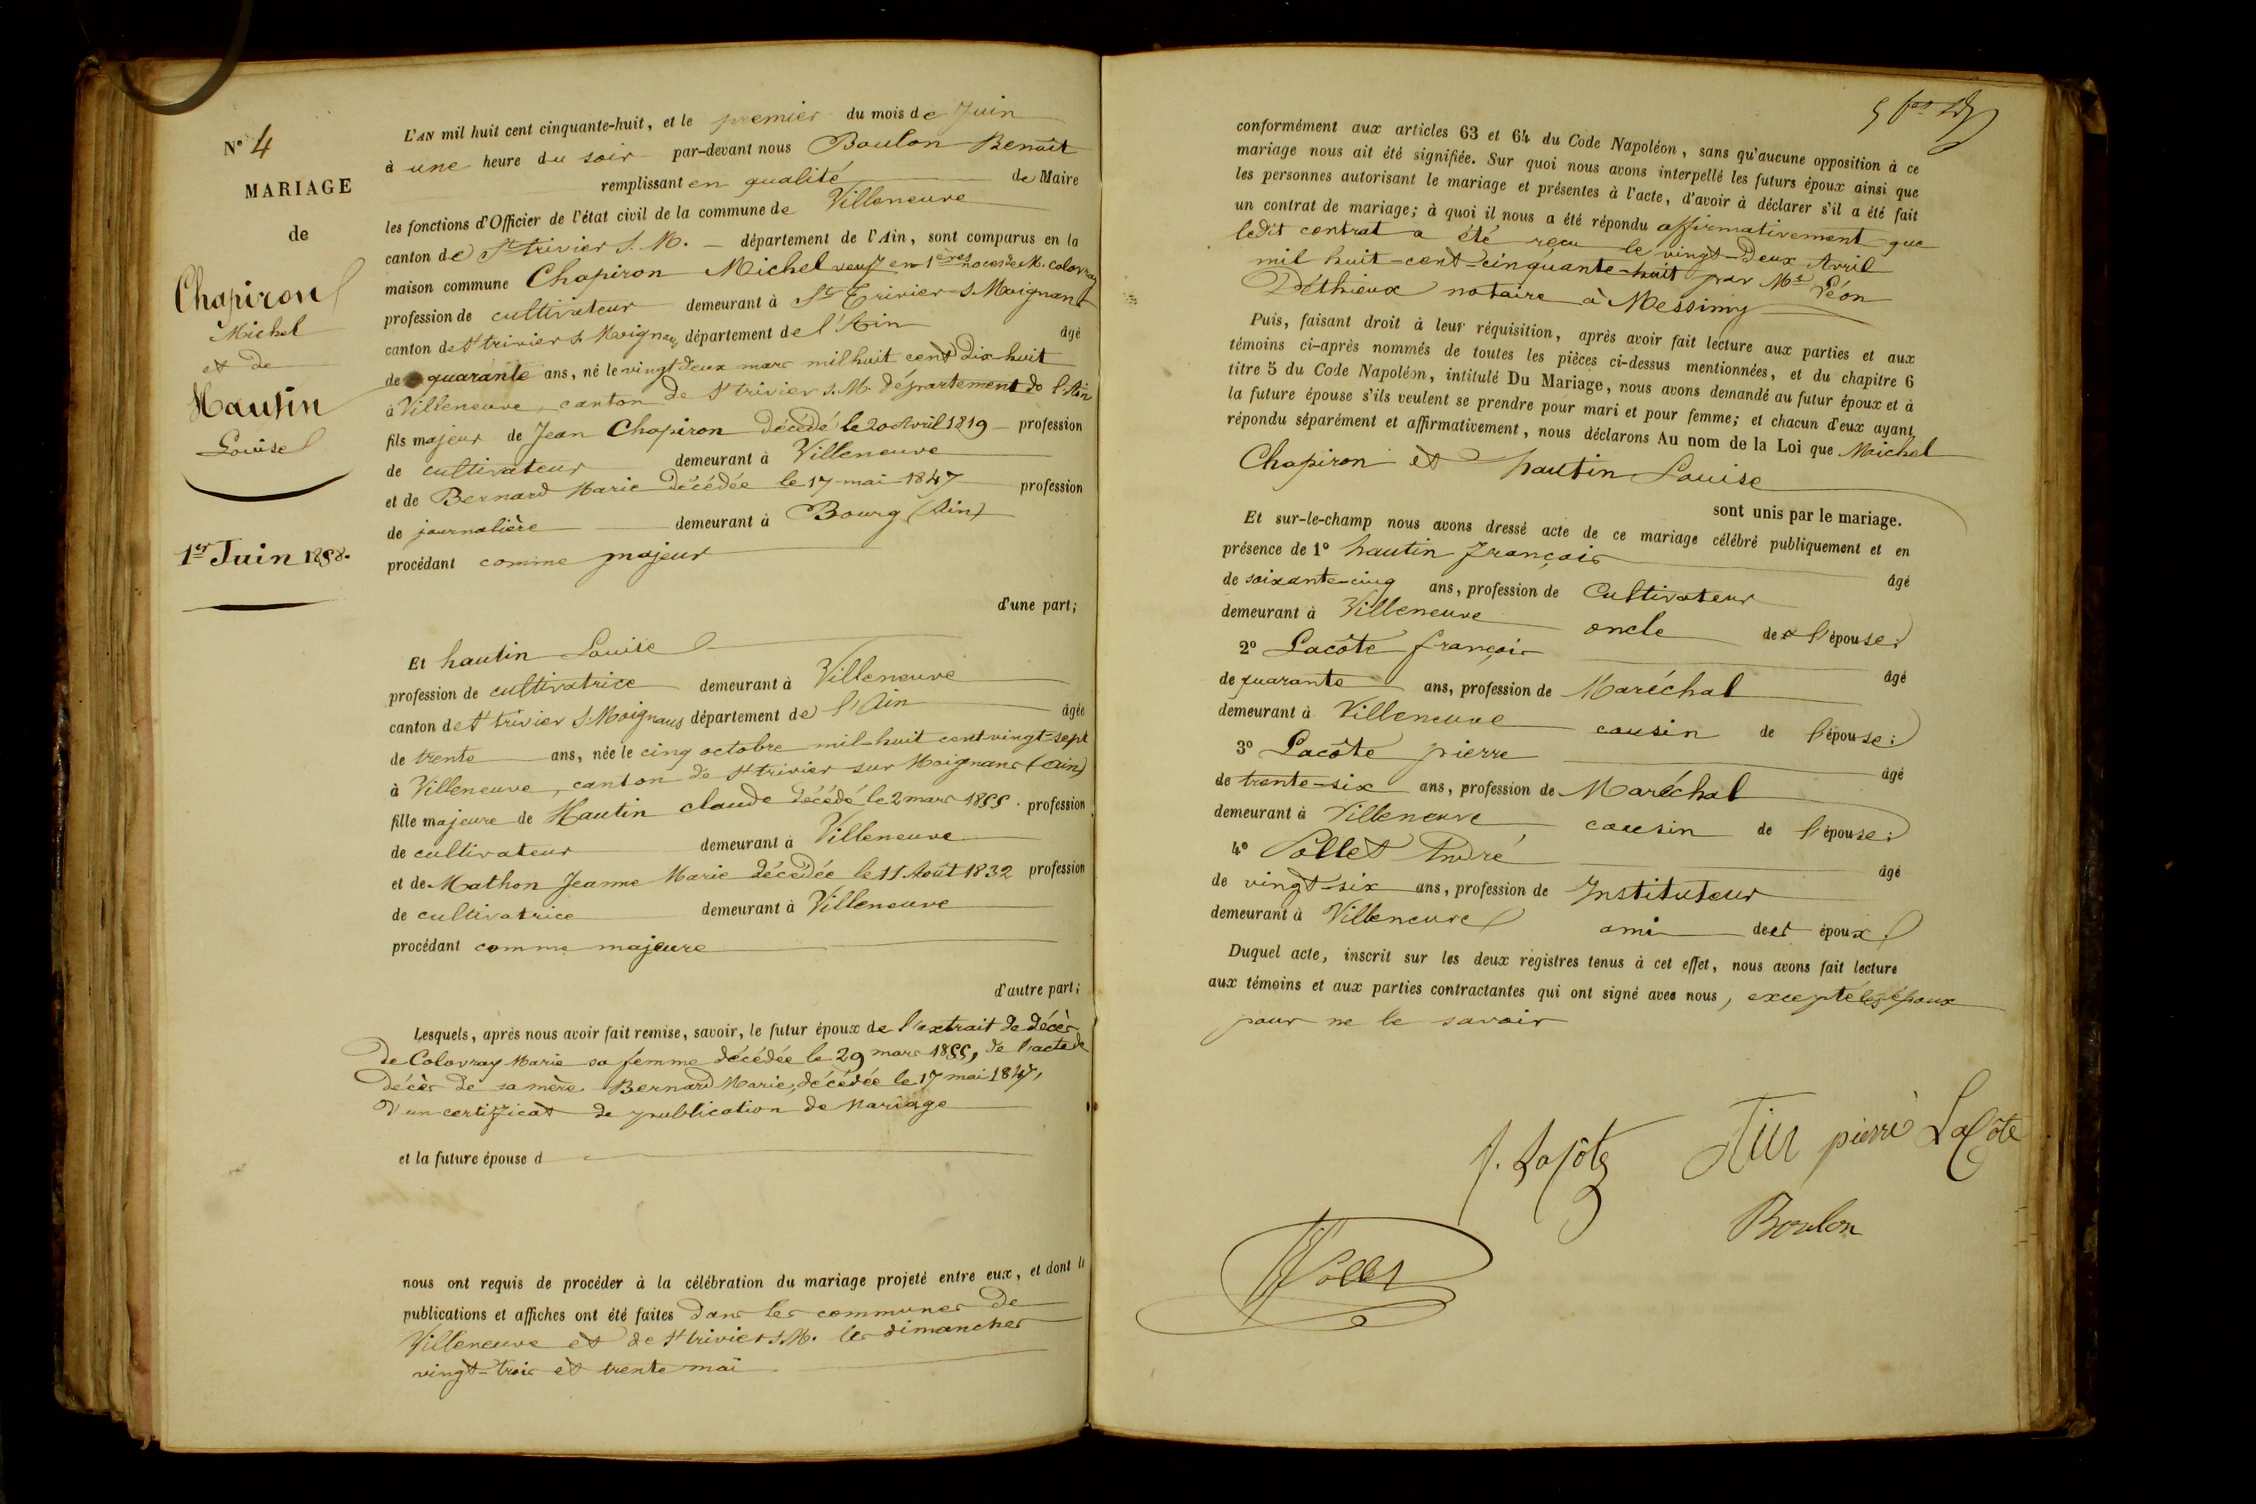 N° 4
MARIAGE
de
Chapiron
Michel
et de
Hautin
Louise
1er Juin 1858.
L'AN mil huit cent cinquante-huit, et le premier du mois de Juin
à une heure du soir par-devant nous Boulon Benoît
remplissant en qualité de Maire
les fonctions d'Officier de l'état civil de la commune de Villeneuve
canton de St trivier s. M. — département de l'Ain, sont comparus en la
maison commune Chapiron Michel veuf en 1ères noces de M. Colovray
profession de cultivateur demeurant à St Trivier s Moignans
canton de St trivier s Moignans département de l'Ain âgé
de quarante ans, né le vingt deux mars mil huit cent dix huit
à Villeneuve, canton de St trivier s. M. département de l'Ain
fils majeur de Jean Chapiron décédé le 20 Avril 1819 — profession
de cultivateur demeurant à Villeneuve
et de Bernard Marie décédée le 17 mai 1847 profession
de journalière demeurant à Bourg (Ain)
procédant comme majeur
d'une part;
Et hautin Louise
profession de cultivatrice demeurant à Villeneuve
canton de St trivier s Moignans département de l'Ain âgée
de trente ans, née le cinq octobre mil-huit cent vingt-sept
à Villeneuve, canton de St trivier sur Moignans (Ain)
fille majeure de Hautin claude décédé le 2 mars 1855. profession
de cultivateur demeurant à Villeneuve
et de Mathon Jeanne Marie décédée le 11 Août 1832 profession
de cultivatrice demeurant à Villeneuve
procédant comme majeure
d'autre part;
Lesquels, après nous avoir fait remise, savoir, le futur époux de l'extrait de décès
de Colovray Marie sa femme décédée le 29 mars 1855, de l'acte de
décès de sa mère Bernard Marie, décédée le 17 mai 1847,
d'un certificat de publication de Mariage
et la future épouse d
nous ont requis de procéder à la célébration du mariage projeté entre eux, et dont le
publications et affiches ont été faites dans les communes de
Villeneuve et de St trivier s. M. les dimanches
vingt-trois et trente mai
conformément aux articles 63 et 64 du Code Napoléon, sans qu'aucune opposition à ce
mariage nous ait été signifiée. Sur quoi nous avons interpellé les futurs époux ainsi que
les personnes autorisant le mariage et présentes à l'acte, d'avoir à déclarer s'il a été fait
un contrat de mariage; à quoi il nous a été répondu affirmativement que
ledit contrat a été reçu le vingt-deux Avril
mil huit-cent-cinquante-huit par Me Léon
Déthieux notaire à Messimy
Puis, faisant droit à leur réquisition, après avoir fait lecture aux parties et aux
témoins ci-après nommés de toutes les pièces ci-dessus mentionnées, et du chapitre 6
titre 5 du Code Napoléon, intitulé Du Mariage, nous avons demandé au futur époux et à
la future épouse s'ils veulent se prendre pour mari et pour femme; et chacun d'eux ayant
répondu séparément et affirmativement, nous déclarons Au nom de la Loi que Michel
Chapiron et hautin Louise
sont unis par le mariage.
Et sur-le-champ nous avons dressé acte de ce mariage célébré publiquement et en
présence de 1° hautin françois âgé
de soixante-cinq ans, profession de Cultivateur
demeurant à Villeneuve oncle de l'épouse:
2° Lacôte françois âgé
de quarante ans, profession de Maréchal
demeurant à Villeneuve cousin de l'épouse:
3° Lacôte pierre âgé
de trente-six ans, profession de Maréchal
demeurant à Villeneuve cousin de l'épouse:
4° Pollet André âgé
de vingt-six ans, profession de Instituteur
demeurant à Villeneuve ami des époux
Duquel acte, inscrit sur les deux registres tenus à cet effet, nous avons fait lecture
aux témoins et aux parties contractantes qui ont signé avec nous, excepté les époux
pour ne le savoir
f. Lacôte pierre Lacôte
Boulon
Pollet